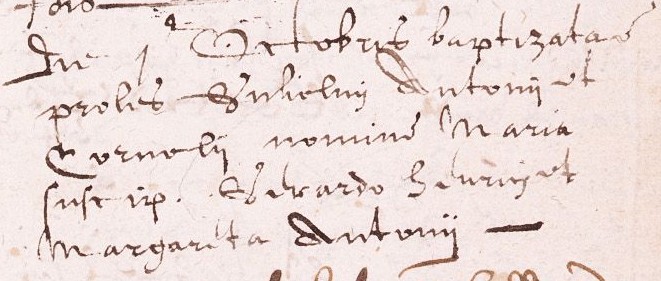 Die 1ª Octobris baptizata ē
proles Guilielmi Antonij et
Cornelij nomine Maria
suscip. Gerardo Henrici et
Margarita Antonij